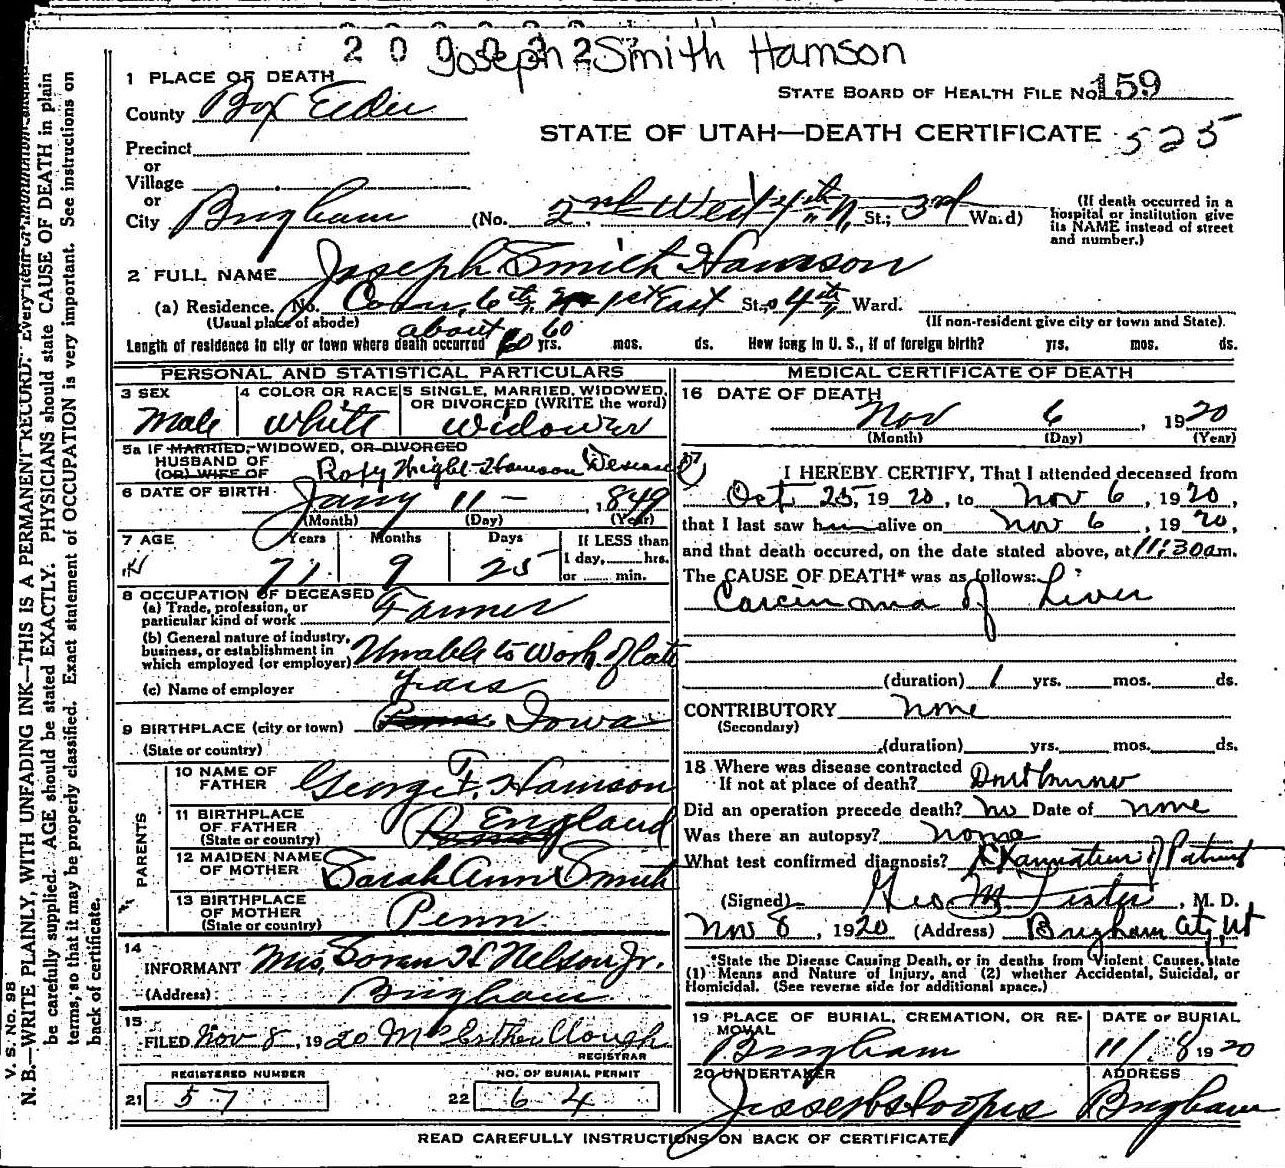 2 0 0 2 2
Joseph Smith Hamson
1 PLACE OF DEATH
STATE BOARD OF HEALTH FILE NO. 159
County Box Elder
STATE OF UTAH—DEATH CERTIFICATE 525
Precinct
or
Village
or
City Brigham (No. 2nd West 4th N, St.; 3rd Ward)
(If death occurred in a hospital or institution give its NAME instead of street and number.)
2 FULL NAME Joseph Smith Hamson
(a) Residence. No. Corn, 6th, 1st East St., 4th Ward.
(Usual place of abode)
(If non-resident give city or town and State).
Length of residence in city or town where death occurred about 60 yrs. mos. ds. How long in U. S., if of foreign birth? yrs. mos. ds.
PERSONAL AND STATISTICAL PARTICULARS
3 SEX
Male
4 COLOR OR RACE
White
5 SINGLE, MARRIED, WIDOWED, OR DIVORCED (WRITE the word)
Widower
5a IF MARRIED, WIDOWED, OR DIVORCED
HUSBAND OF
(OR) WIFE OF Roxy Wright Hamson
6 DATE OF BIRTH Jany 11 – , 1849
(Month) (Day) (Year)
7 AGE Years Months Days If LESS than
1 day,......hrs.
71 9 25 or ...... min.
8 OCCUPATION OF DECEASED
(a) Trade, profession, or particular kind of work Farmer
(b) General nature of industry, business, or establishment in which employed (or employer) Unable to Work of late
(c) Name of employer years
9 BIRTHPLACE (city or town) Iowa
(State or country)
PARENTS
10 NAME OF FATHER George F. Hamson
11 BIRTHPLACE OF FATHER England
(State or country)
12 MAIDEN NAME OF MOTHER Sarah Ann Smith
13 BIRTHPLACE OF MOTHER Penn.
(State or country)
14
INFORMANT Mrs. Soren N Nelson Jr.
(Address) Brigham
15
FILED Nov 8, 1920 Mrs Esther Clough
REGISTRAR
REGISTERED NUMBER
21 57
NO. OF BURIAL PERMIT
22 64
MEDICAL CERTIFICATE OF DEATH
16 DATE OF DEATH
Nov 6, 1920
(Month) (Day) (Year)
17
I HEREBY CERTIFY, That I attended deceased from
Oct 25, 1920, to Nov 6, 1920,
that I last saw him alive on Nov 6, 1920,
and that death occured, on the date stated above, at 11:30 am.
The CAUSE OF DEATH* was as follows:
Carcinoma of Liver
(duration) 1 yrs. mos. ds.
CONTRIBUTORY none
(Secondary)
(duration) yrs. mos. ds.
18 Where was disease contracted
If not at place of death? Dont know
Did an operation precede death? no Date of none
Was there an autopsy? none
What test confirmed diagnosis? Examination of Patient
(Signed) Geo M Fister, M. D.
Nov 8, 1920 (Address) Brigham City, Ut
*State the Disease Causing Death, or in deaths from Violent Causes, state
(1) Means and Nature of Injury, and (2) whether Accidental, Suicidal, or
Homicidal. (See reverse side for additional space.)
19 PLACE OF BURIAL, CREMATION, OR REMOVAL
Brigham
DATE OF BURIAL
11/8 1920
20 UNDERTAKER
ADDRESS
Brigham
READ CAREFULLY INSTRUCTIONS ON BACK OF CERTIFICATE
V. S. No. 98
N. B.—WRITE PLAINLY, WITH UNFADING INK—THIS IS A PERMANENT RECORD. Every item of information should
be carefully supplied. AGE should be stated EXACTLY. PHYSICIANS should state CAUSE OF DEATH in plain
terms, so that it may be properly classified. Exact statement of OCCUPATION is very important. See instructions on
back of certificate.